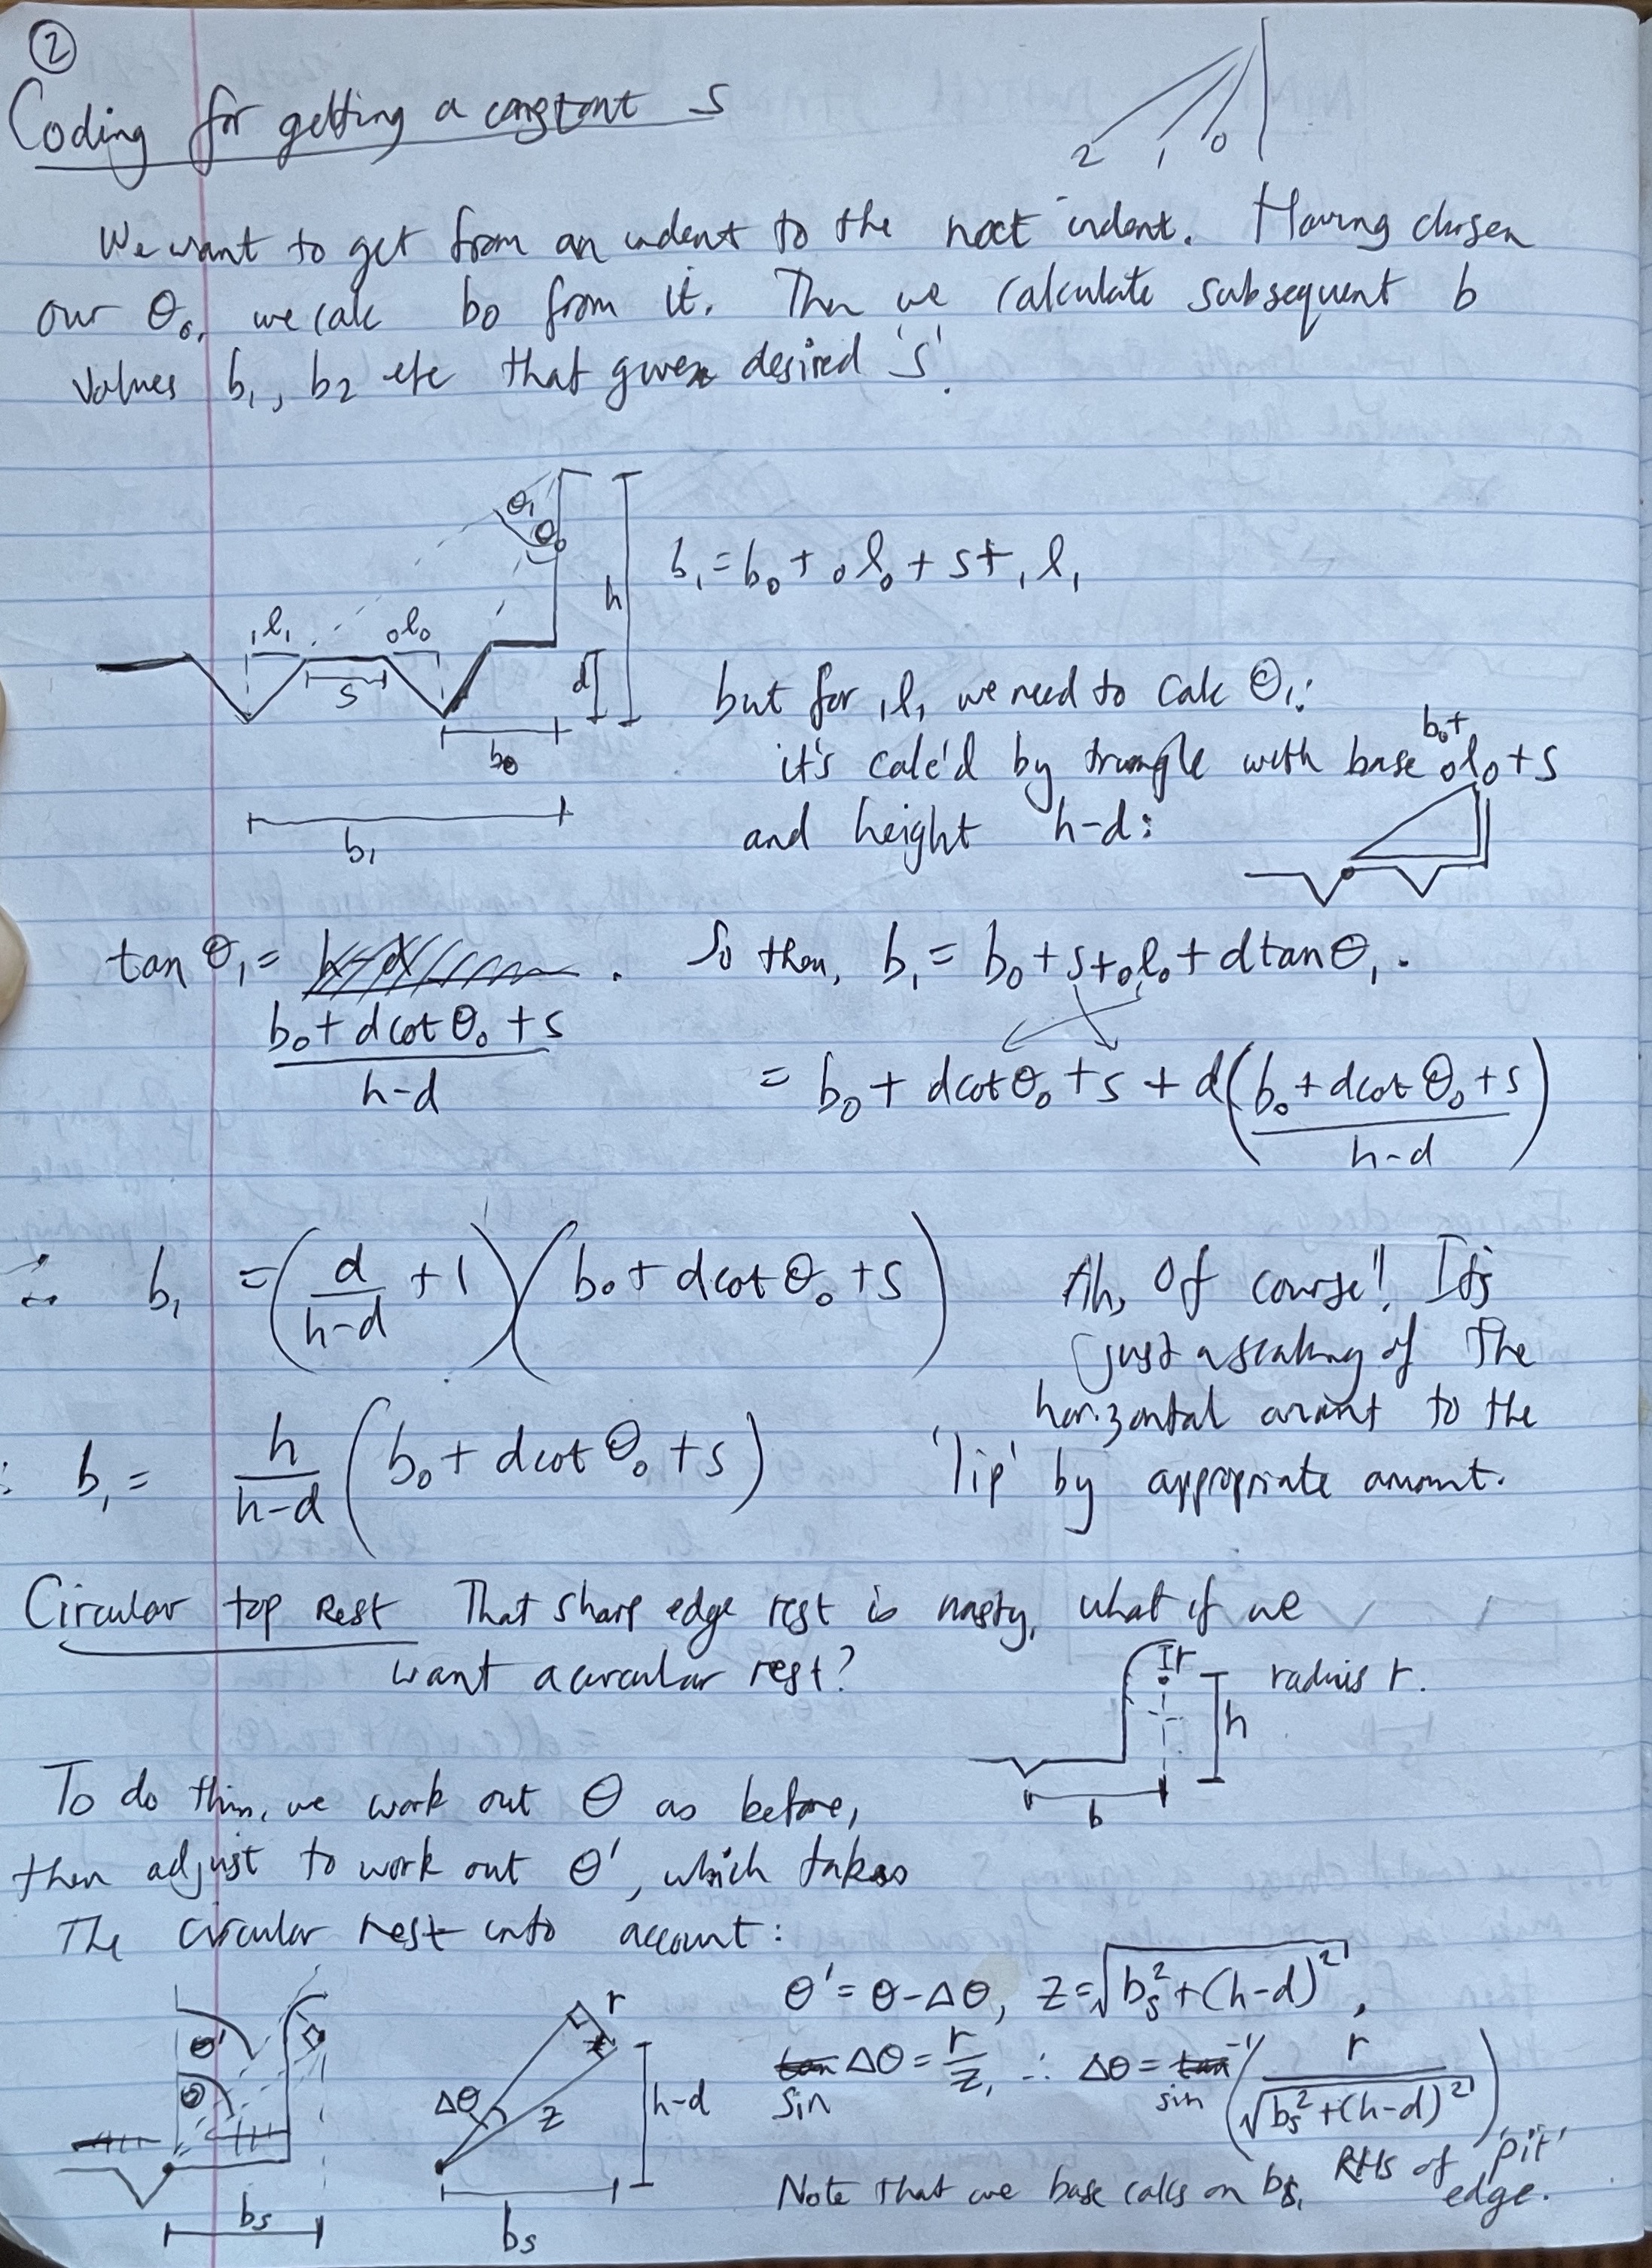 ②
Coding for getting a constant s
2 1 0
We want to get from an indent to the next indent. Having chosen
our θ₀, we calc b₀ from it. Then we calculate subsequent b
values b₁, b₂ etc that given desired 's'.
θ₁
θ₀
h
₁l₁ ₀l₀
s
d
b₀
b₁
b₁ = b₀ + ₀l₀ + s + ₁l₁
but for ₁l₁ we need to calc θ₁:
it's calc'd by triangle with base b₀+ ₀l₀ + s
and height h-d:
tan θ₁ = (b₀ + d cot θ₀ + s)/(h-d) . So then, b₁ = b₀ + s + ₀l₀ + d tan θ₁.
= b₀ + d cot θ₀ + s + d((b₀ + d cot θ₀ + s)/(h-d))
∴ b₁ = (d/(h-d) + 1)(b₀ + d cot θ₀ + s)
Ah, of course! It's
just a scaling of the
horizontal amount to the
'lip' by appropriate amount.
: b₁ = h/(h-d) (b₀ + d cot θ₀ + s)
Circular top rest That sharp edge rest is nasty, what if we
want a circular rest?
r radius r.
h
b
To do this, we work out θ as before,
then adjust to work out θ', which takes
the circular rest into account:
θ' = θ - Δθ, z = √(bₛ² + (h-d)²),
sin Δθ = r/z, ∴ Δθ = sin⁻¹(r/√(bₛ² + (h-d)²))
Note that we base calcs on bₛ, RHS of 'pit' edge.
θ'
θ
bₛ
r
Δθ
z
h-d
bₛ